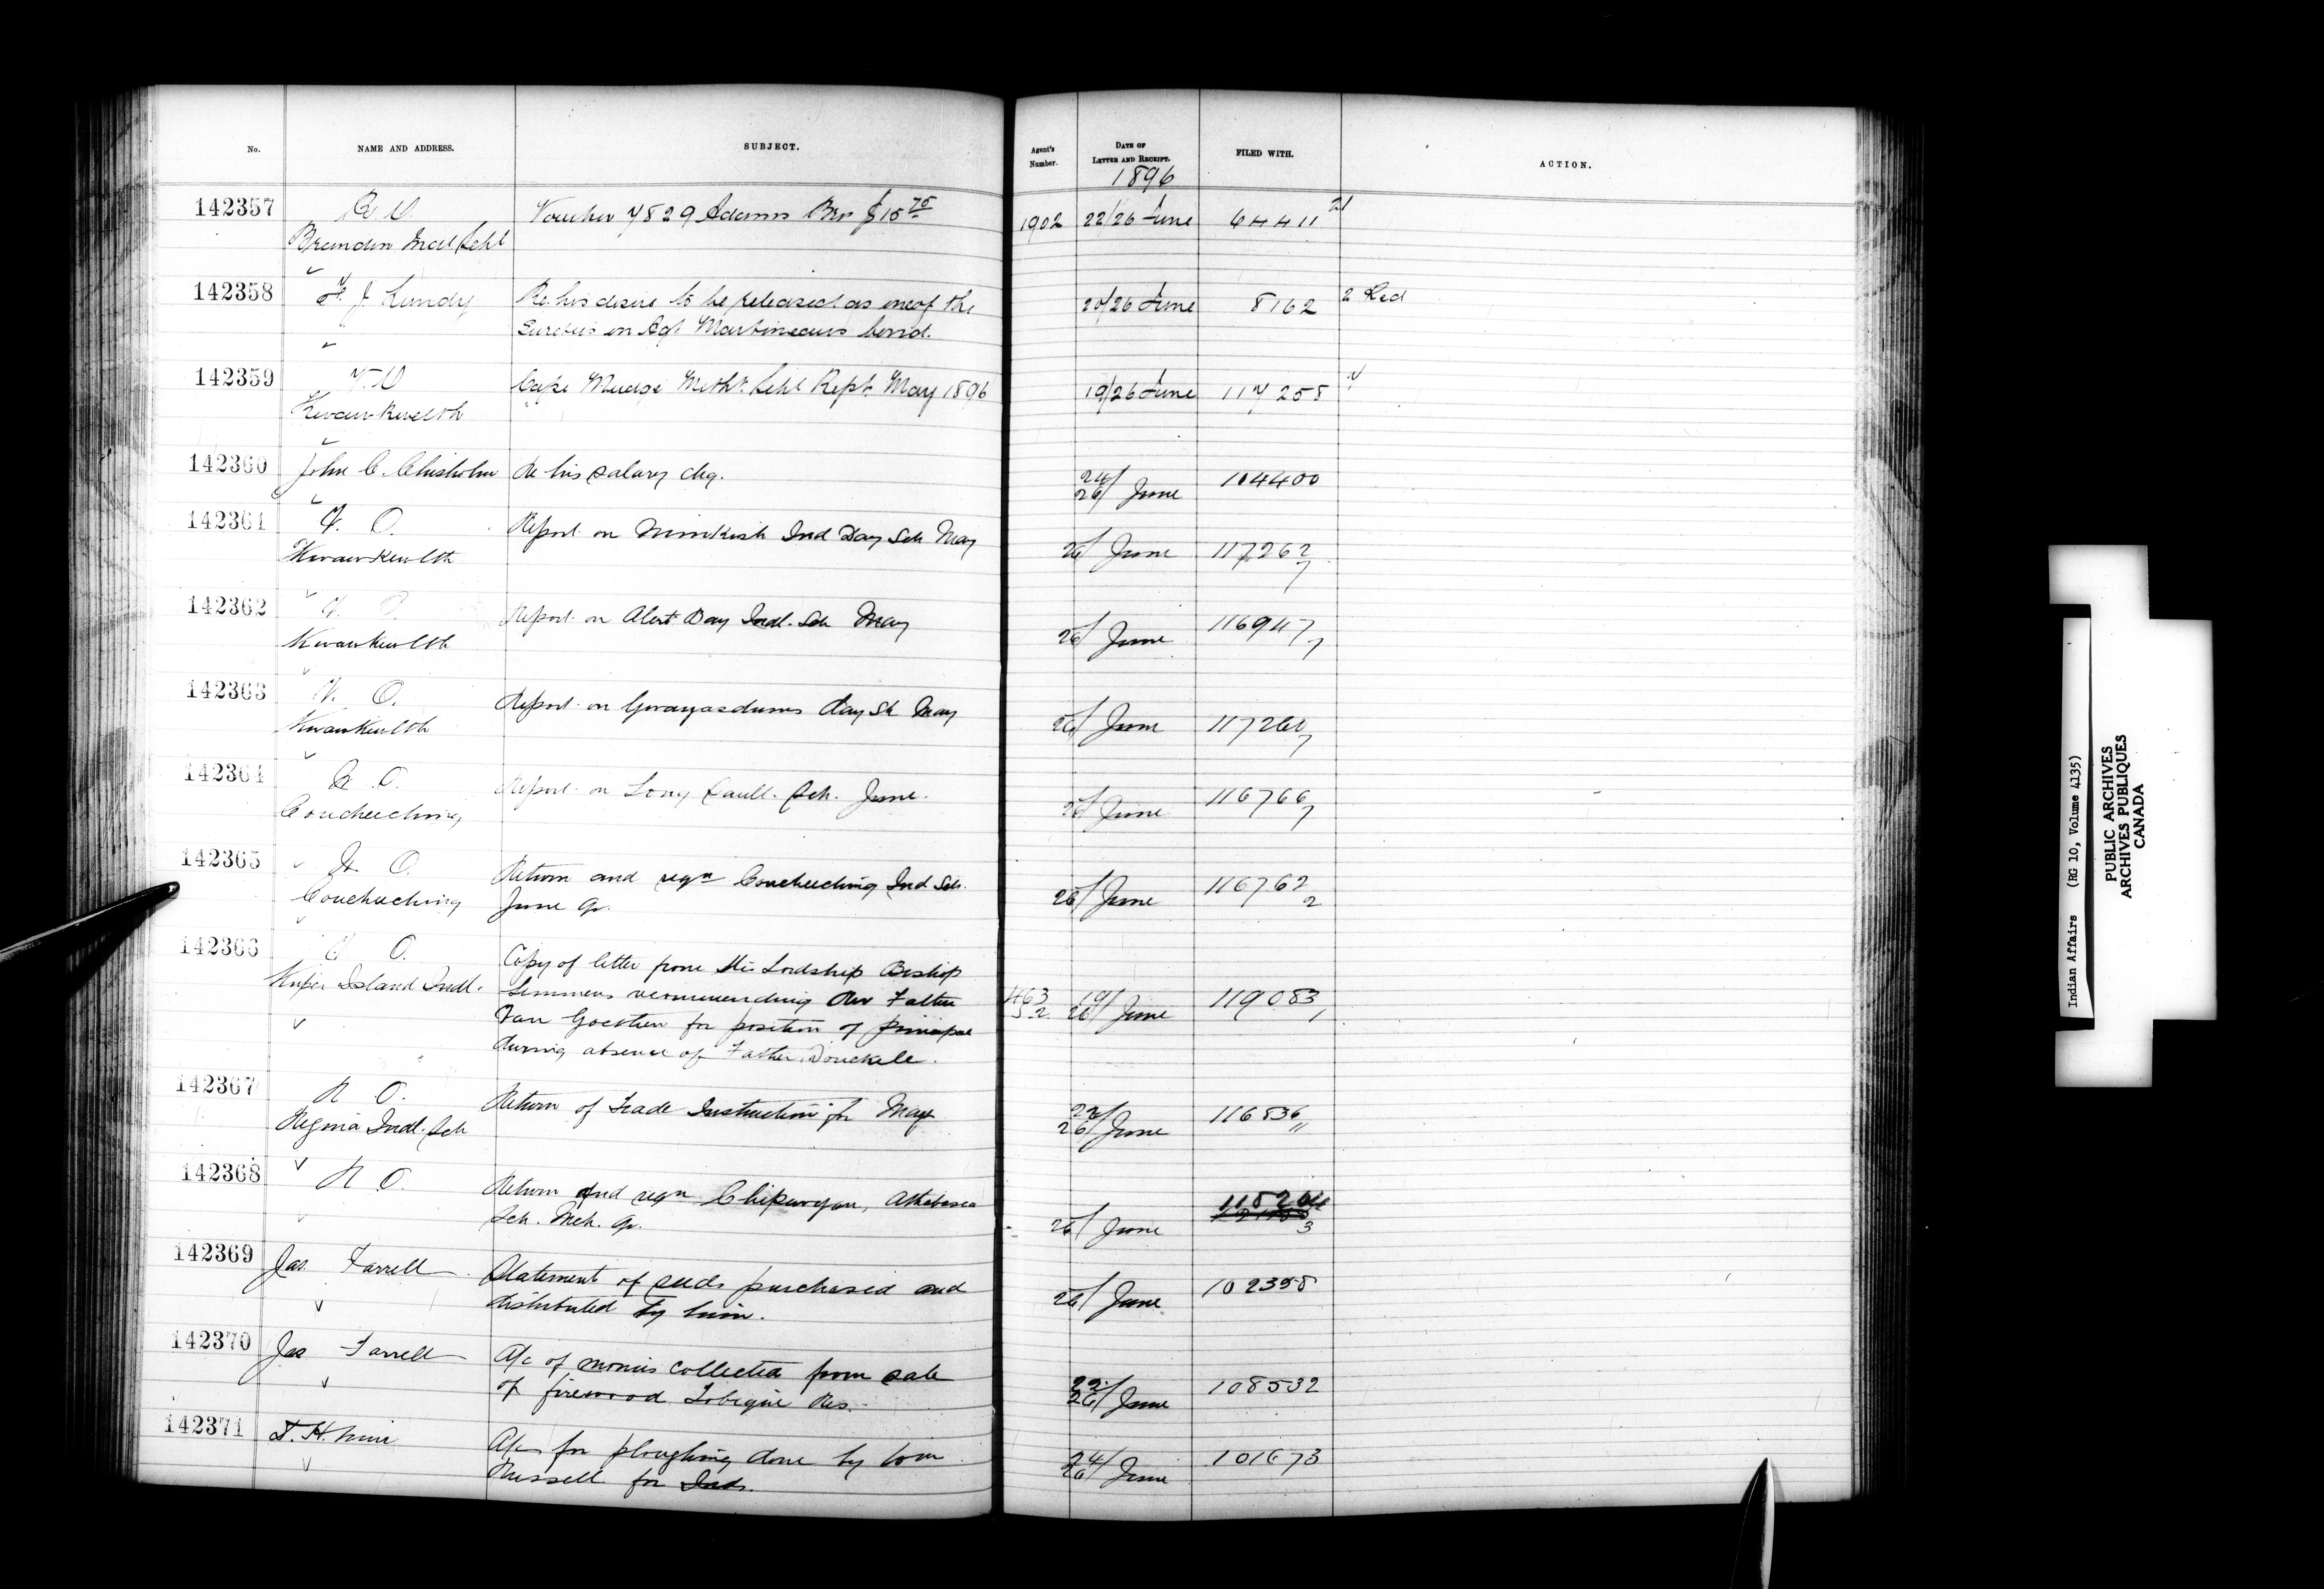 No. NAME AND ADDRESS. SUBJECT. Agent's Number. DATE OF LETTER AND RECEIPT. FILED WITH. ACTION.
1896
142357 R O Voucher 7829 Adams Bro $15 75 1902 22/26 June 64411 21
Brandon Indl Schl
142358 F. J. Lundy Re his desire to be released as one of the 20/26 June 8162 2 Red
Sureties on Agt Martineaus bond.
142359 V O Cape Mudge Meth. Schl Rept. May 1896 19/26 June 117258
Kwawkewlth
142360 John C. Chisholm Re his salary chq. 24/26 June 104400
142361 V. O. Report on Nimkish Ind Day Sch May 26/ June 117262 7
Kwawkewlth
142362 V. O. Report on Alert Bay Indl. Sch May 26/ June 116947 7
Kwawkewlth
142363 V. O. Report on Gwayasdums day Sch May 26/ June 117260 7
Kwawkewlth
142364 R O. Report on Long Sault. Sch. June. 26/ June 116766 7
Coucheeching
142365 R O. Return and reqn Coucheeching Ind Sch. 26/ June 116762 2
Coucheeching June Qr.
142366 V O. Copy of letter from His Lordship Bishop
Kuper Island Indl. Lemmens recommending Rev Father 463 52 19/26 June 119083 1
Van Goethem for position of principal
during absence of Father Donckele.
142367 R O. Return of Trade Instruction for May 22/26 June 116836 11
Regina Indl. Sch
142368 R O. Return and reqn Chipewyan, Athabasca
Sch. Mch. Qr. 26/ June 3
142369 Jas Farrell Statement of seeds purchased and
distributed by him. 26/ June 102358
142370 Jas Farrell A/c of monies collected from sale
of firewood Tobique Res. 22/26 June 108532
142371 A/c for ploughing done by Wm 24/26 June 101673
Russell for Inds.
Indian Affairs (RG 10, Volume 4135)
PUBLIC ARCHIVES
ARCHIVES PUBLIQUES
CANADA